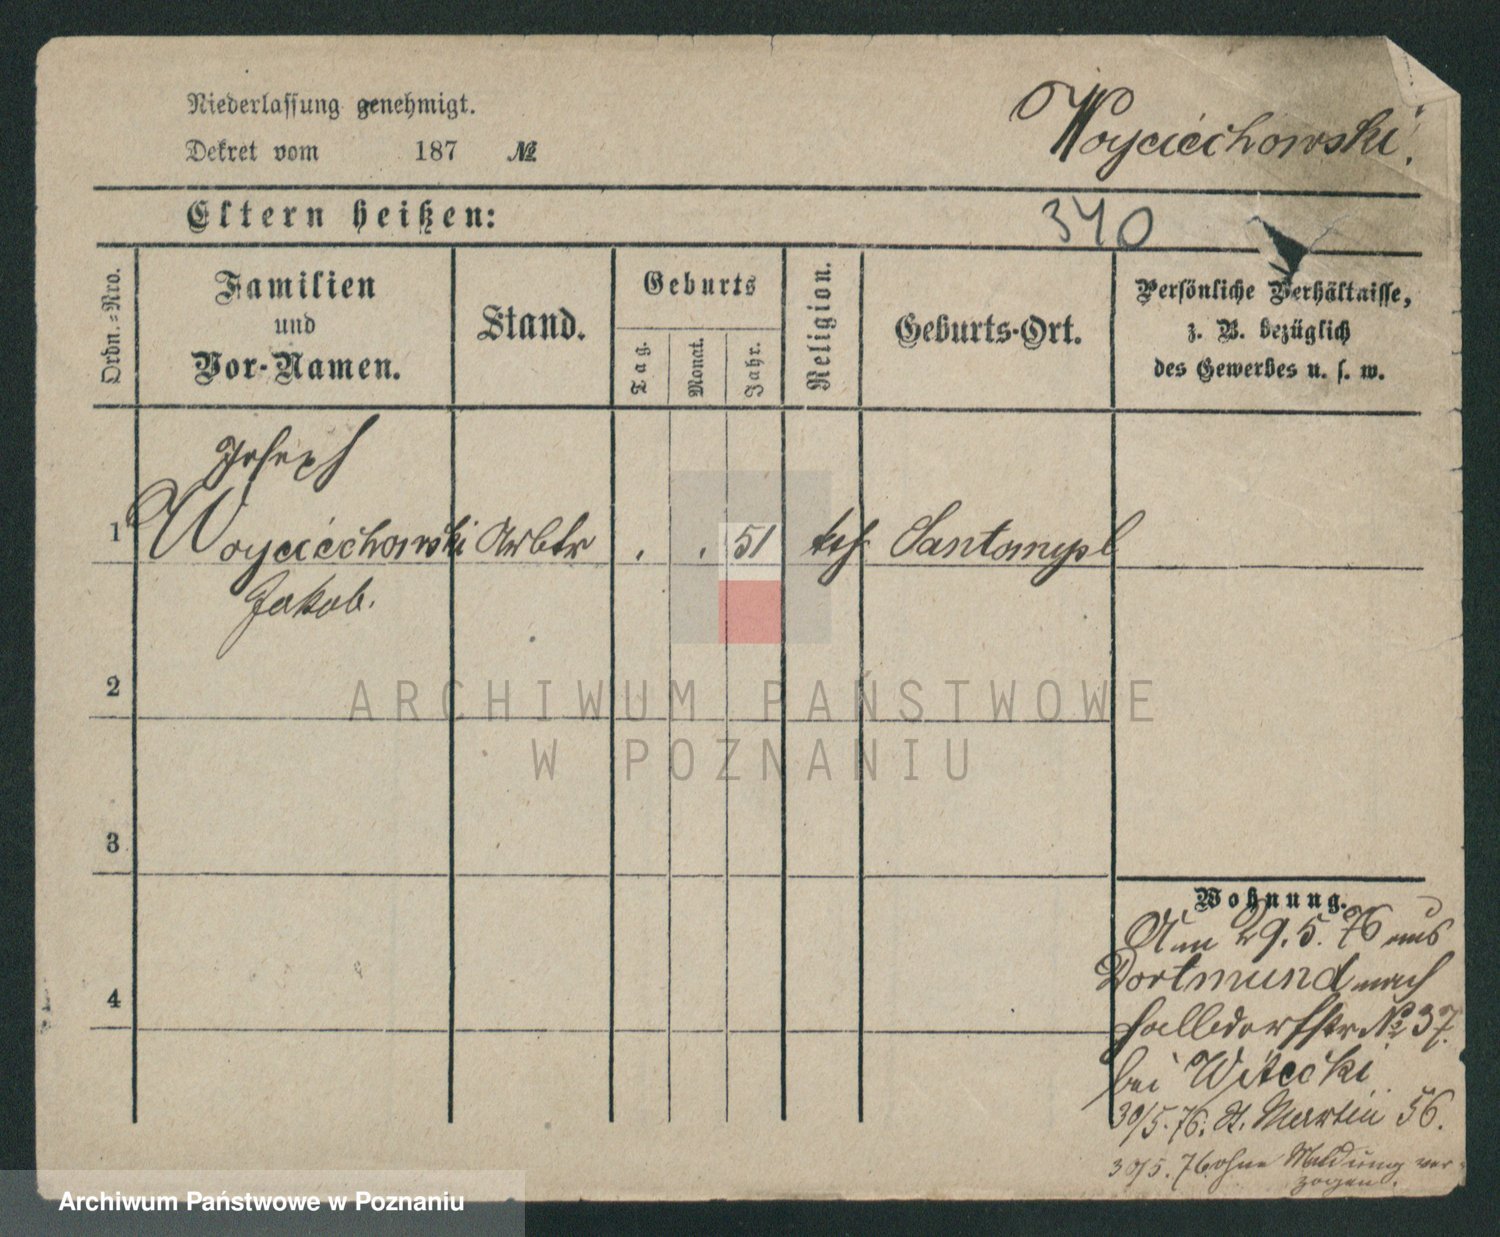 Niederlassung genehmigt.
Dekret vom 187 №
Woyciechowski.
Eltern heißen:
340
Ordn.=Nro.
Familien
und
Vor-Namen.
Stand.
Geburts
Tag.
Monat.
Jahr.
Religion.
Geburts-Ort.
Persönliche Verhältnisse,
z. B. bezüglich
des Gewerbes u. s. w.
Joseph
1 Woyciechowski Arbtr . . 51 kth Santomysl
Jakob.
2
3
4
Wohnung.
29. 5. 76 aus
Dortmund nach
Halbdorfstr № 37.
bei Witecki
30/5. 76. St. Martin 56.
30/5. 76 ohne Meldung ver-
zogen.
ARCHIWUM PAŃSTWOWE
W POZNANIU
Archiwum Państwowe w Poznaniu